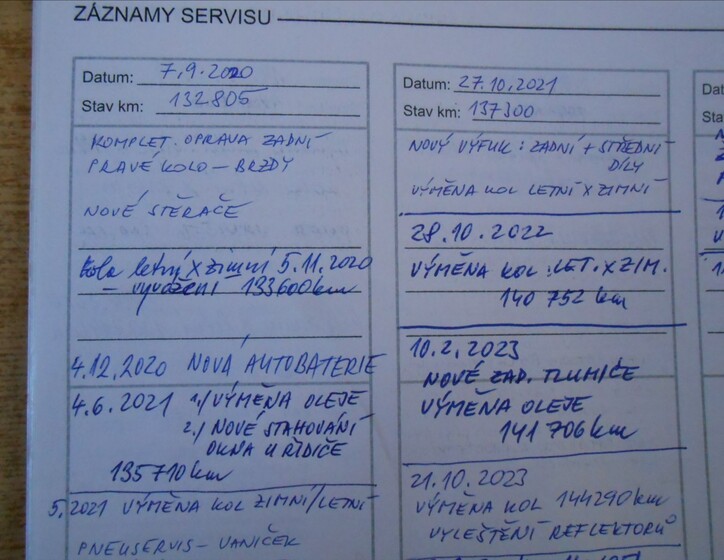 ZÁZNAMY SERVISU
Datum: 7.9.2020
Stav km: 132805
KOMPLET. OPRAVA ZADNÍ
PRAVÉ KOLO – BRZDY
NOVÉ STĚRAČE
kola letní x zimní 5.11.2020
– vyvážení 133600km
4.12.2020 NOVÁ AUTOBATERIE
4.6.2021 1.) VÝMĚNA OLEJE
2.) NOVÉ STAHOVÁNÍ
OKNA U ŘIDIČE
135710km
5.2021 VÝMĚNA KOL ZIMNÍ/LETNÍ
PNEUSERVIS – VANÍČEK
Datum: 27.10.2021
Stav km: 137300
NOVÝ VÝFUK: ZADNÍ + STŘEDNÍ
DÍLY
VÝMĚNA KOL LETNÍ X ZIMNÍ
28.10.2022
VÝMĚNA KOL .LET. X ZIM.
140 752 km
10.2.2023
NOVÉ ZAD. TLUMIČE
VÝMĚNA OLEJE
141 706 km
21.10.2023
VÝMĚNA KOL 144290km
VYLEŠTĚNÍ REFLEKTORŮ
Dat
Sta